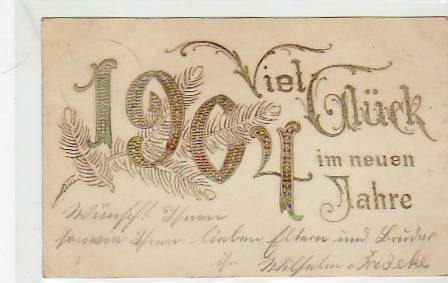 1904
Viel
Glück
im neuen
Jahre
Wünscht Ihnen
sowie Ihren lieben Eltern und Bruder
ihr Wilhelm